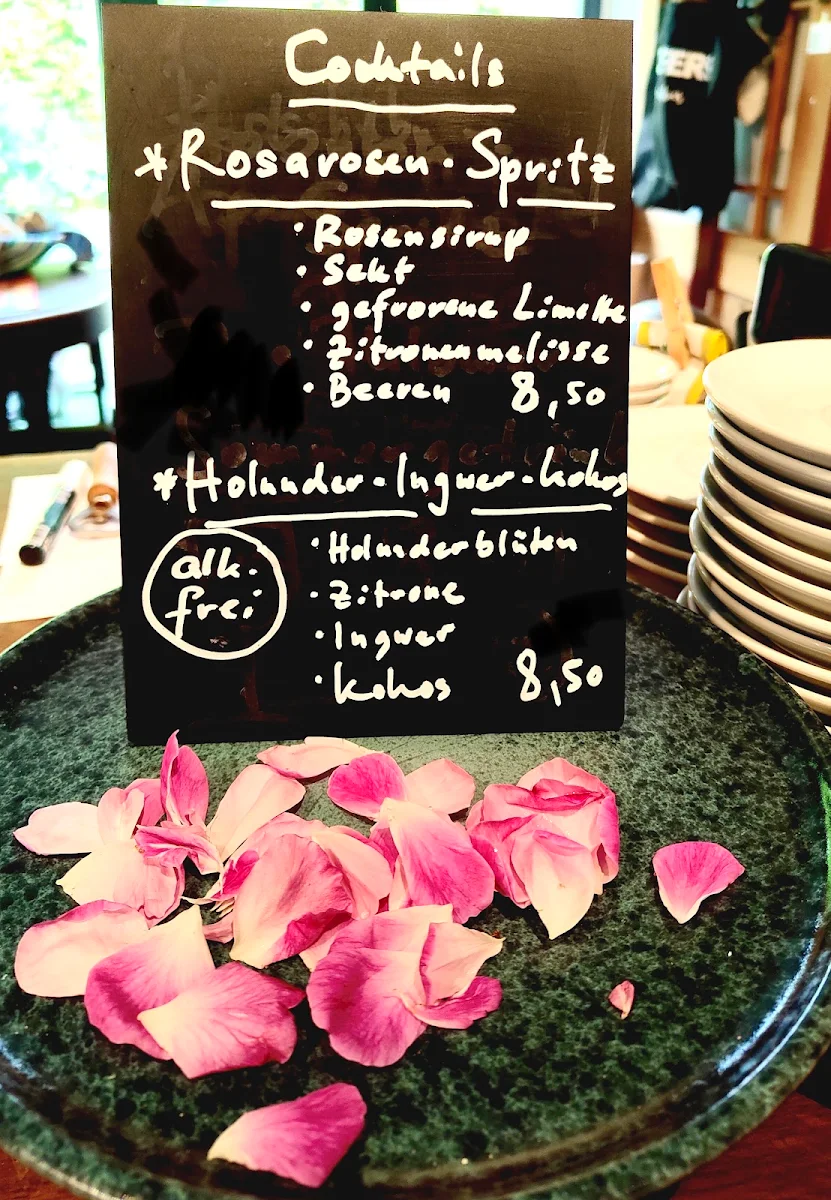 Cocktails
* Rosarosen-Spritz
· Rosensirup
· Sekt
· gefrorene Limette
· Zitronenmelisse
· Beeren 8,50
* Holunder-Ingwer-Kokos
alk.
frei
· Holunderblüten
· Zitrone
· Ingwer
· Kokos 8,50